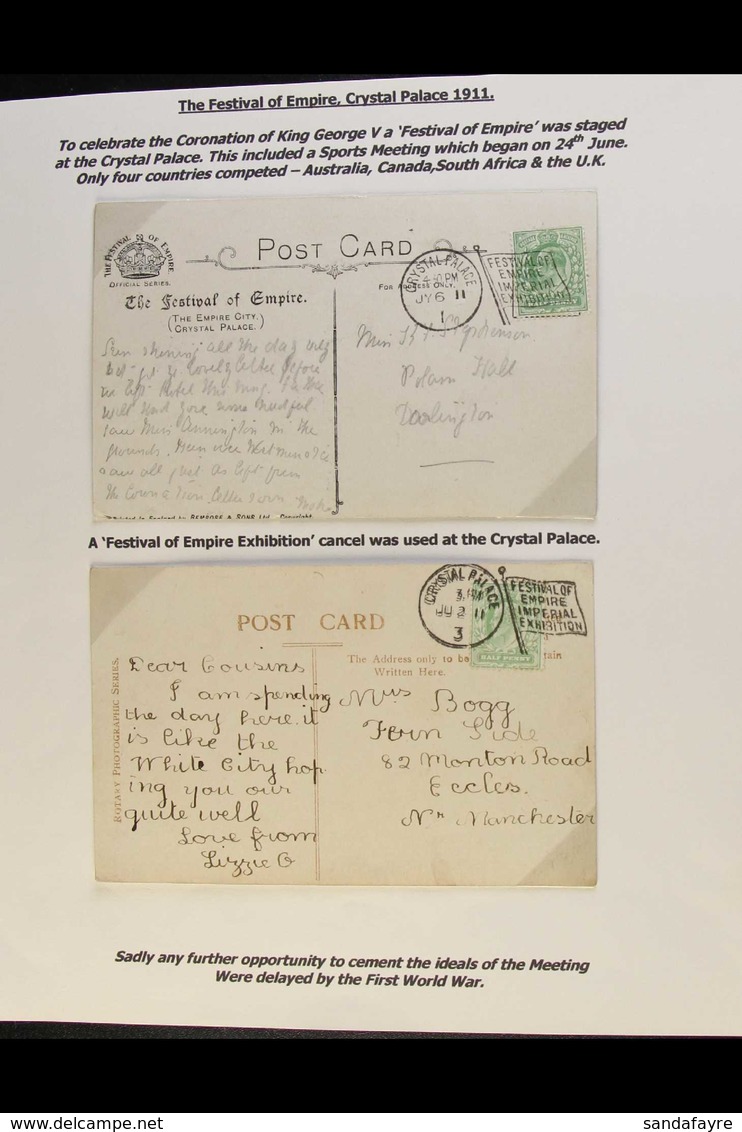 The Festival of Empire, Crystal Palace 1911.
To celebrate the Coronation of King George V a ‘Festival of Empire’ was staged
at the Crystal Palace. This included a Sports Meeting which began on 24th June.
Only four countries competed – Australia, Canada,South Africa & the U.K.
THE FESTIVAL OF EMPIRE.
OFFICIAL SERIES.
POST CARD
The Festival of Empire.
(THE EMPIRE CITY,
CRYSTAL PALACE.)
FOR ADDRESS ONLY.
CRYSTAL PALACE
PM
JY 6 11
1
FESTIVAL OF
EMPIRE
IMPERIAL
EXHIBITION
shining all the day
lovely letter before
this
will
saw Miss in the
grounds.
saw all just as left from
the
Miss Stephenson
Polam Hall
Darlington
Printed in England by BEMROSE & SONS Ltd. Copyright.
A ‘Festival of Empire Exhibition’ cancel was used at the Crystal Palace.
POST CARD
ROTARY PHOTOGRAPHIC SERIES.
The Address only to be
tain
Written Here.
CRYSTAL PALACE
11
3
FESTIVAL OF
EMPIRE
IMPERIAL
EXHIBITION
HALF PENNY
Dear Cousins
I am spending
the day here. it
is like the
White City hop
ing you our
quite well
Love from
Lizzie G
Mrs Bogg
Fern Side
82 Monton Road
Eccles.
Nr Manchester
Sadly any further opportunity to cement the ideals of the Meeting
Were delayed by the First World War.
sandafayre